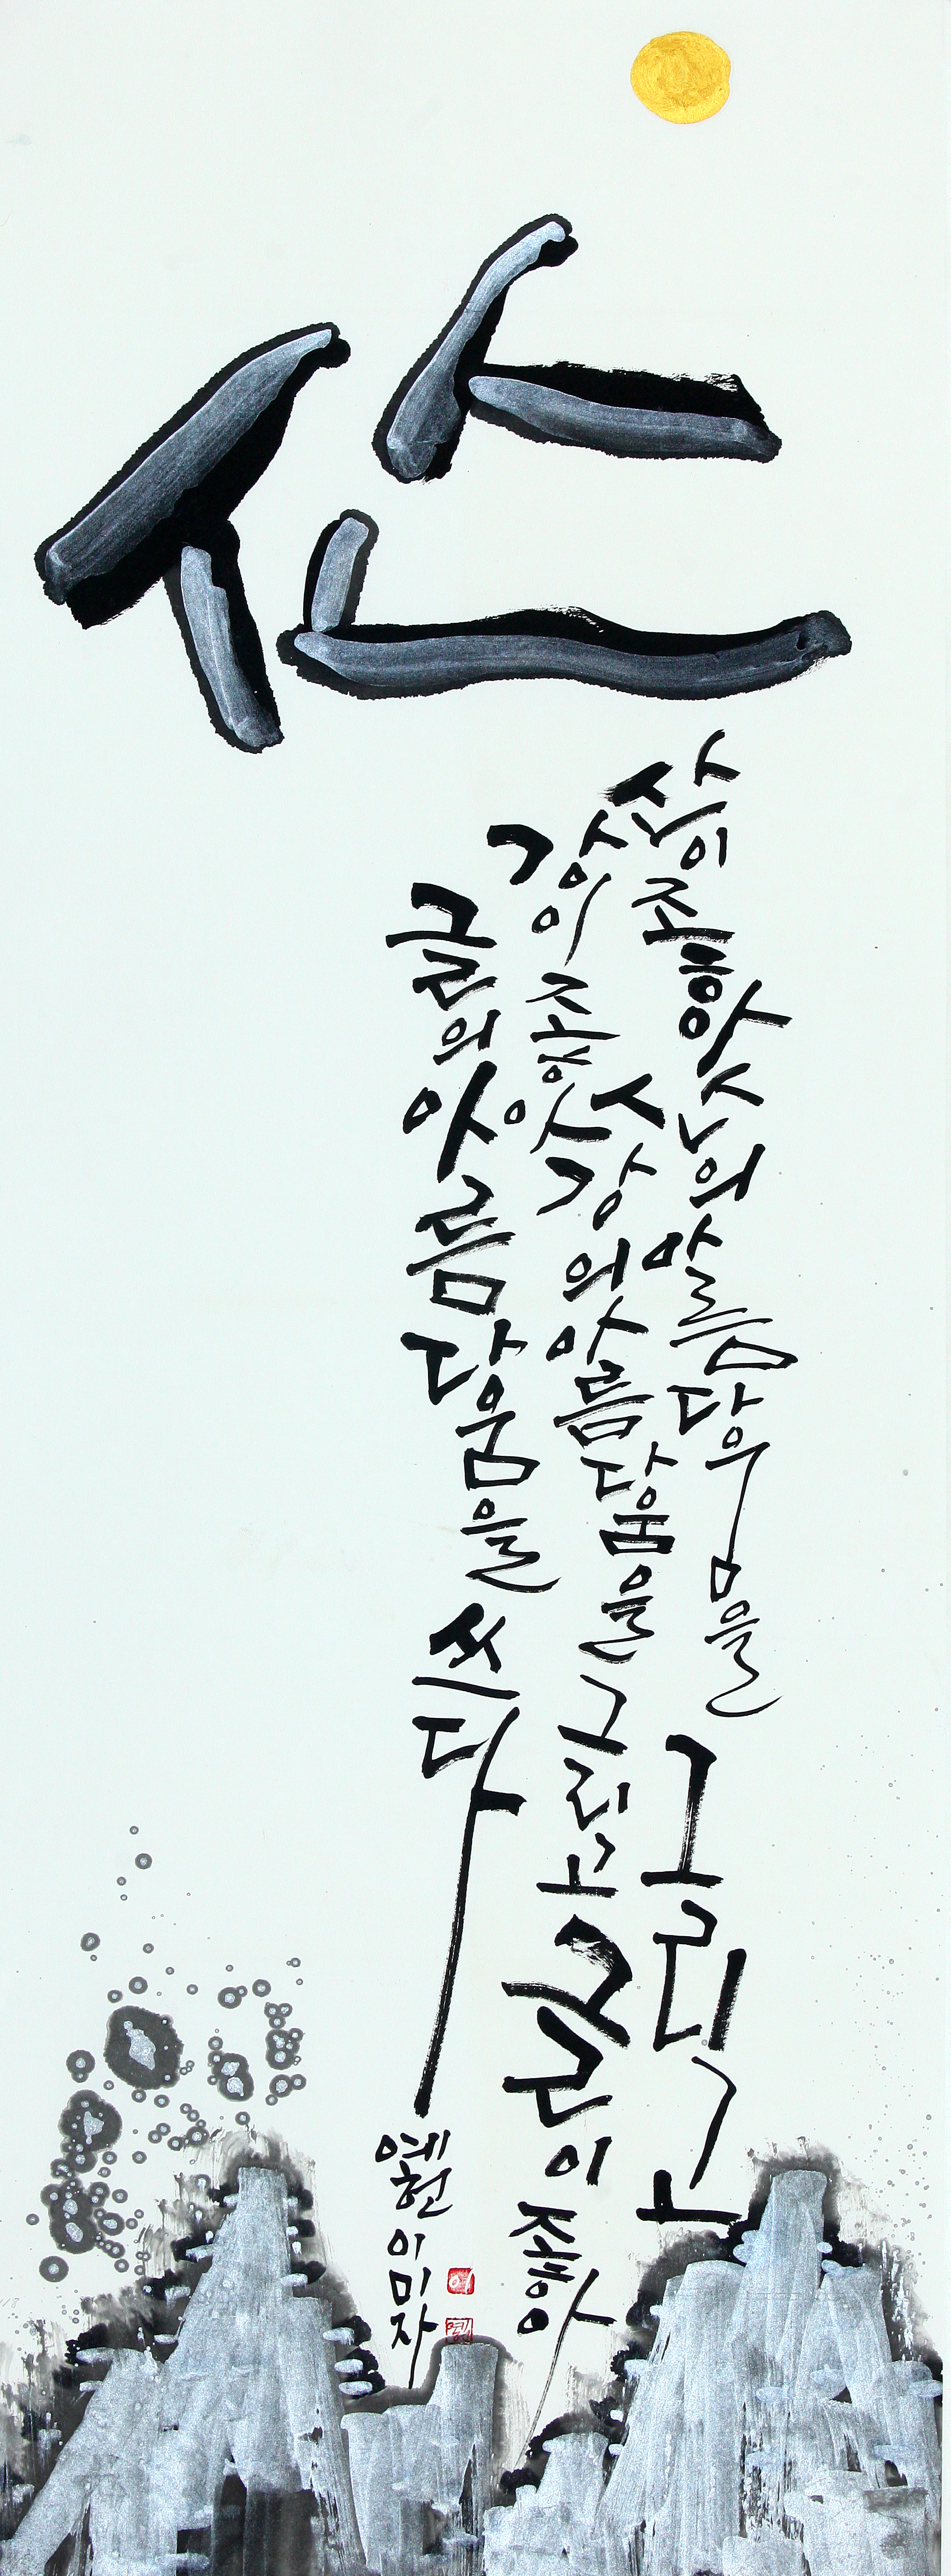 산
산이 좋아 산의 아름다움을 그리고
강이 좋아 강의 아름다움을 그리고 글이 좋아
글의 아름다움을 쓰다
이미자